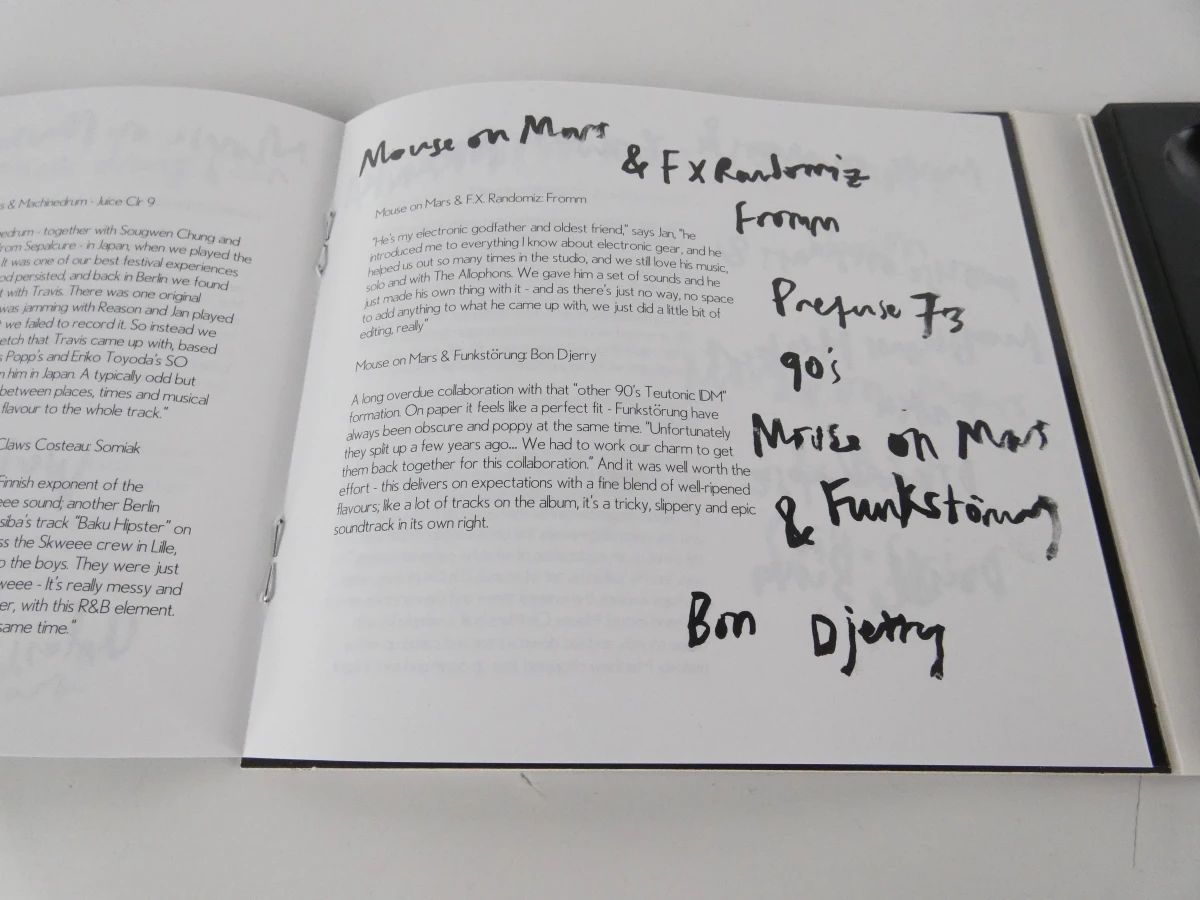 s & Machinedrum - Juice Clr 9
nedrum - together with Sougwen Chung and
rom Sepalcure - in Japan, when we played the
It was one of our best festival experiences
od persisted, and back in Berlin we found
t with Travis. There was one original
was jamming with Reason and Jan played
we failed to record it. So instead we
etch that Travis came up with, based
s Popp's and Eriko Toyoda's SO
n him in Japan. A typically odd but
between places, times and musical
flavour to the whole track."
Claws Costeau: Somiak
Finnish exponent of the
eee sound; another Berlin
siba's track "Baku Hipster" on
ss the Skweee crew in Lille,
o the boys. They were just
weee - It's really messy and
er, with this R&B element.
same time."
Mouse on Mars
& FX Randomiz
Fromm
Mouse on Mars & F.X. Randomiz: Fromm
"He's my electronic godfather and oldest friend," says Jan, "he
introduced me to everything I know about electronic gear, and he
helped us out so many times in the studio, and we still love his music,
solo and with The Allophons. We gave him a set of sounds and he
just made his own thing with it - and as there's just no way, no space
to add anything to what he came up with, we just did a little bit of
editing, really"
Prefuse 73
90's
Mouse on Mars & Funkstörung: Bon Djerry
A long overdue collaboration with that "other 90's Teutonic IDM"
formation. On paper it feels like a perfect fit - Funkstörung have
always been obscure and poppy at the same time. "Unfortunately
they split up a few years ago... We had to work our charm to get
them back together for this collaboration." And it was well worth the
effort - this delivers on expectations with a fine blend of well-ripened
flavours; like a lot of tracks on the album, it's a tricky, slippery and epic
soundtrack in its own right.
Mouse on Mars
& Funkstörung
Bon Djerry